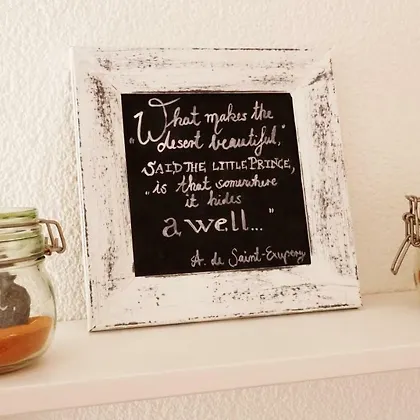 "What makes the
desert beautiful,"
SAID THE LITTLE PRINCE,
„is that somewhere
it hides
a well..."
A. de Saint-Exupery